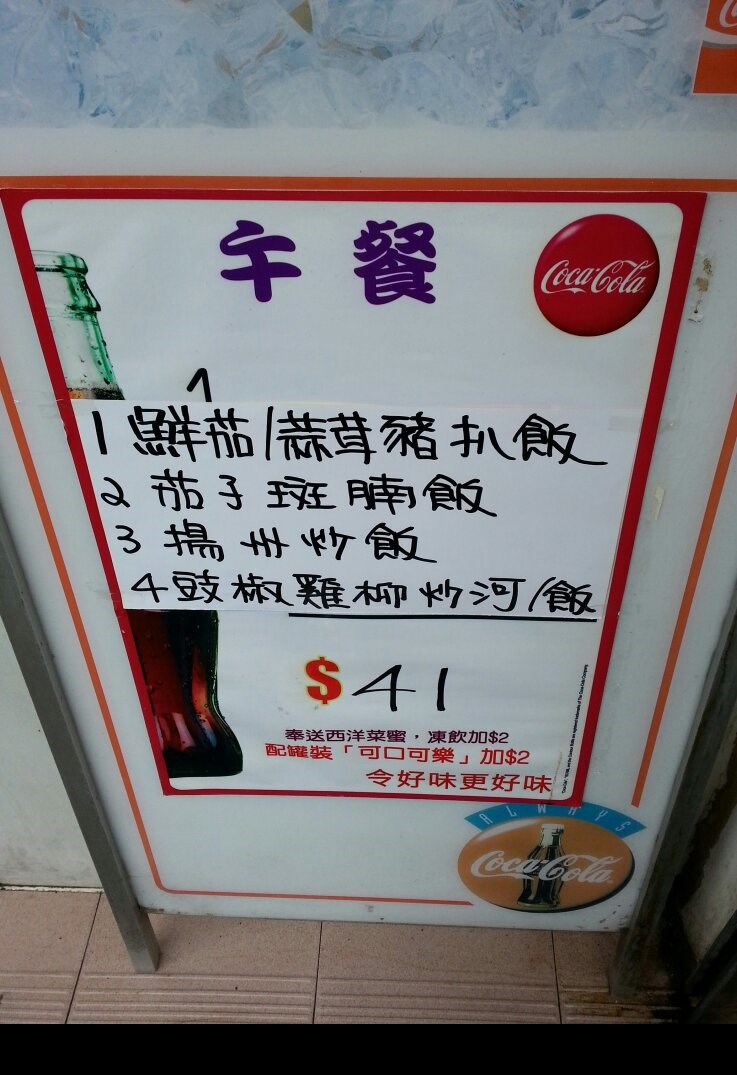 午餐
Coca-Cola
1 鮮茄/蒜茸豬扒飯
2 茄子斑腩飯
3 揚州炒飯
4 豉椒雞柳炒河/飯
$41
奉送西洋菜蜜，凍飲加$2
配罐裝「可口可樂」加$2
令好味更好味
ALWAYS
Coca-Cola